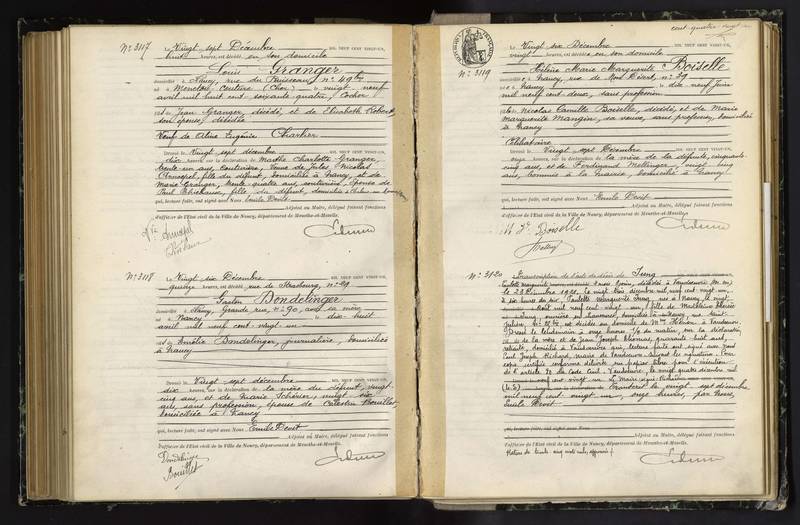 N° 3117
Le Vingt sept Décembre MIL NEUF CENT VINGT-UN,
huit heures, est décédé en son domicile
Louis Granger
domicilié à Nancy, rue du Ruisseau, n° 49bis
né à Menetou Couture (Cher) le vingt neuf
avril mil huit cent soixante quatre, Cocher
fils de Jean Granger décédé, et de Elisabeth Robert
son épouse, décédée
Veuf de Aline Eugénie Charlier
Dressé le Vingt sept décembre MIL NEUF CENT VINGT-UN,
dix heures, sur la déclaration de Marthe Charlotte Granger,
trente un ans, couturière, Veuve de Jules Nicolas
fille du défunt, domiciliée à Nancy, et de
Marie Granger, trente quatre ans, couturière, épouse de
Paul fille du défunt, domiciliée à
qui, lecture faite, ont signé avec Nous Emile Benit
Adjoint au Maire, délégué faisant fonctions
d'officier de l'Etat civil de la Ville de Nancy, département de Meurthe-et-Moselle.
N° 3118
Le Vingt six Décembre MIL NEUF CENT VINGT-UN,
quinze heures, est décédé rue de Strasbourg, n° 29
Gaston Bondelinger
domicilié à Nancy, Grande rue, n° 90, avec sa mère
né à Nancy le dix huit
avril mil neuf cent vingt un
fils de Emélie Bondelinger, journalière, domiciliée
à Nancy
Dressé le Vingt sept décembre MIL NEUF CENT VINGT-UN,
dix heures, sur la déclaration de la mère du défunt, vingt
cinq ans, et de Marie Schérier, vingt six
ans, sans profession, épouse de Célestin Bouillet,
domiciliée à Nancy
qui, lecture faite, ont signé avec Nous Emile Benit
Adjoint au Maire, délégué faisant fonctions
d'officier de l'Etat civil de la Ville de Nancy, département de Meurthe-et-Moselle.
Bondelinger
Bouillet
cent quatre vingt
N° 3119
Le Vingt six Décembre MIL NEUF CENT VINGT-UN,
vingt heures, est décédée en son domicile
Hélène Marie Marguerite Boiselle
domiciliée à Nancy, rue de Mon Désert, n° 39
née à Nancy le dix neuf Juin
mil neuf cent deux, sans profession
fille de Nicolas Camille Boiselle, décédé, et de Marie
Marguerite Mangin, sa veuve, sans profession, domiciliée
à Nancy
Célibataire
Dressé le Vingt sept Décembre MIL NEUF CENT VINGT-UN,
onze heures, sur la déclaration de la mère de la défunte, cinquante
cinq ans, et de Ferdinand vingt cinq
ans, commis à la mairie, domicilié à Nancy
qui, lecture faite, ont signé avec Nous Emile Benit
Adjoint au Maire, délégué faisant fonctions
d'officier de l'Etat civil de la Ville de Nancy, département de Meurthe-et-Moselle.
Boiselle
N° 3120
Transcription de l'acte de décès de Jung
Paulette Marguerite
le 23 Décembre 1921. Le vingt trois décembre mil neuf cent vingt un,
à six heures du soir, Paulette Marguerite Jung née à Nancy le vingt
mil neuf cent vingt un, fille de Madeleine
Jung, domiciliée à Nancy, rue Saint
Julien, est décédée au domicile de
Dressé le lendemain à onze heures du matin, sur la déclaration
de la mère et de Jean Joseph Thomas, quarante huit ans,
domicilié à Vandœuvre qui, lecture faite ont signé avec nous
Paul Joseph Richard, maire de Vandœuvre. Suivent les signatures. Pour
copie certifiée conforme délivrée sur papier libre pour l'exécution
de l'article 80 du Code Civil. Vandœuvre, le vingt quatre décembre mil
neuf cent vingt un. Le Maire signé Richard
(L.S.) Transcrit le vingt sept décembre
mil neuf cent vingt un, onze heures, par Nous,
Emile Benit
qui, lecture faite, ont signé avec Nous
Adjoint au Maire, délégué faisant fonctions
d'officier de l'Etat civil de la Ville de Nancy, département de Meurthe-et-Moselle.